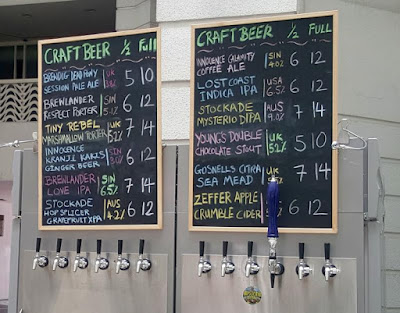 CRAFT BEER ½ FULL
BRENDIG DEAD PONY UK 5 10
SESSION PALE ALE
BREWLANDER SIN 6 12
RESPECT PORTER
TINY REBEL UK 7 14
MARSHMALLOW PORTER 5.2%
INNOCENCE SIN 6 12
KRANJI KAKIS
GINGER BEER
BREWLANDER SIN 7 14
LOVE IPA 6.5%
STOCKADE AUS 6 12
HOP SPLICER 4.2%
GRAPEFRUIT XPA
CRAFT BEER ½ FULL
INNOCENCE CALAMITY SIN 6 12
COFFEE ALE 4.0%
LOST COAST USA 6 12
INDICA IPA 6.5%
STOCKADE AUS 7 14
MYSTERIO DIPA
YOUNGS DOUBLE UK 5 10
CHOCOLATE STOUT 5.2%
GOSNELLS CITRA 7 14
SEA MEAD
ZEFFER APPLE 6 12
CRUMBLE CIDER